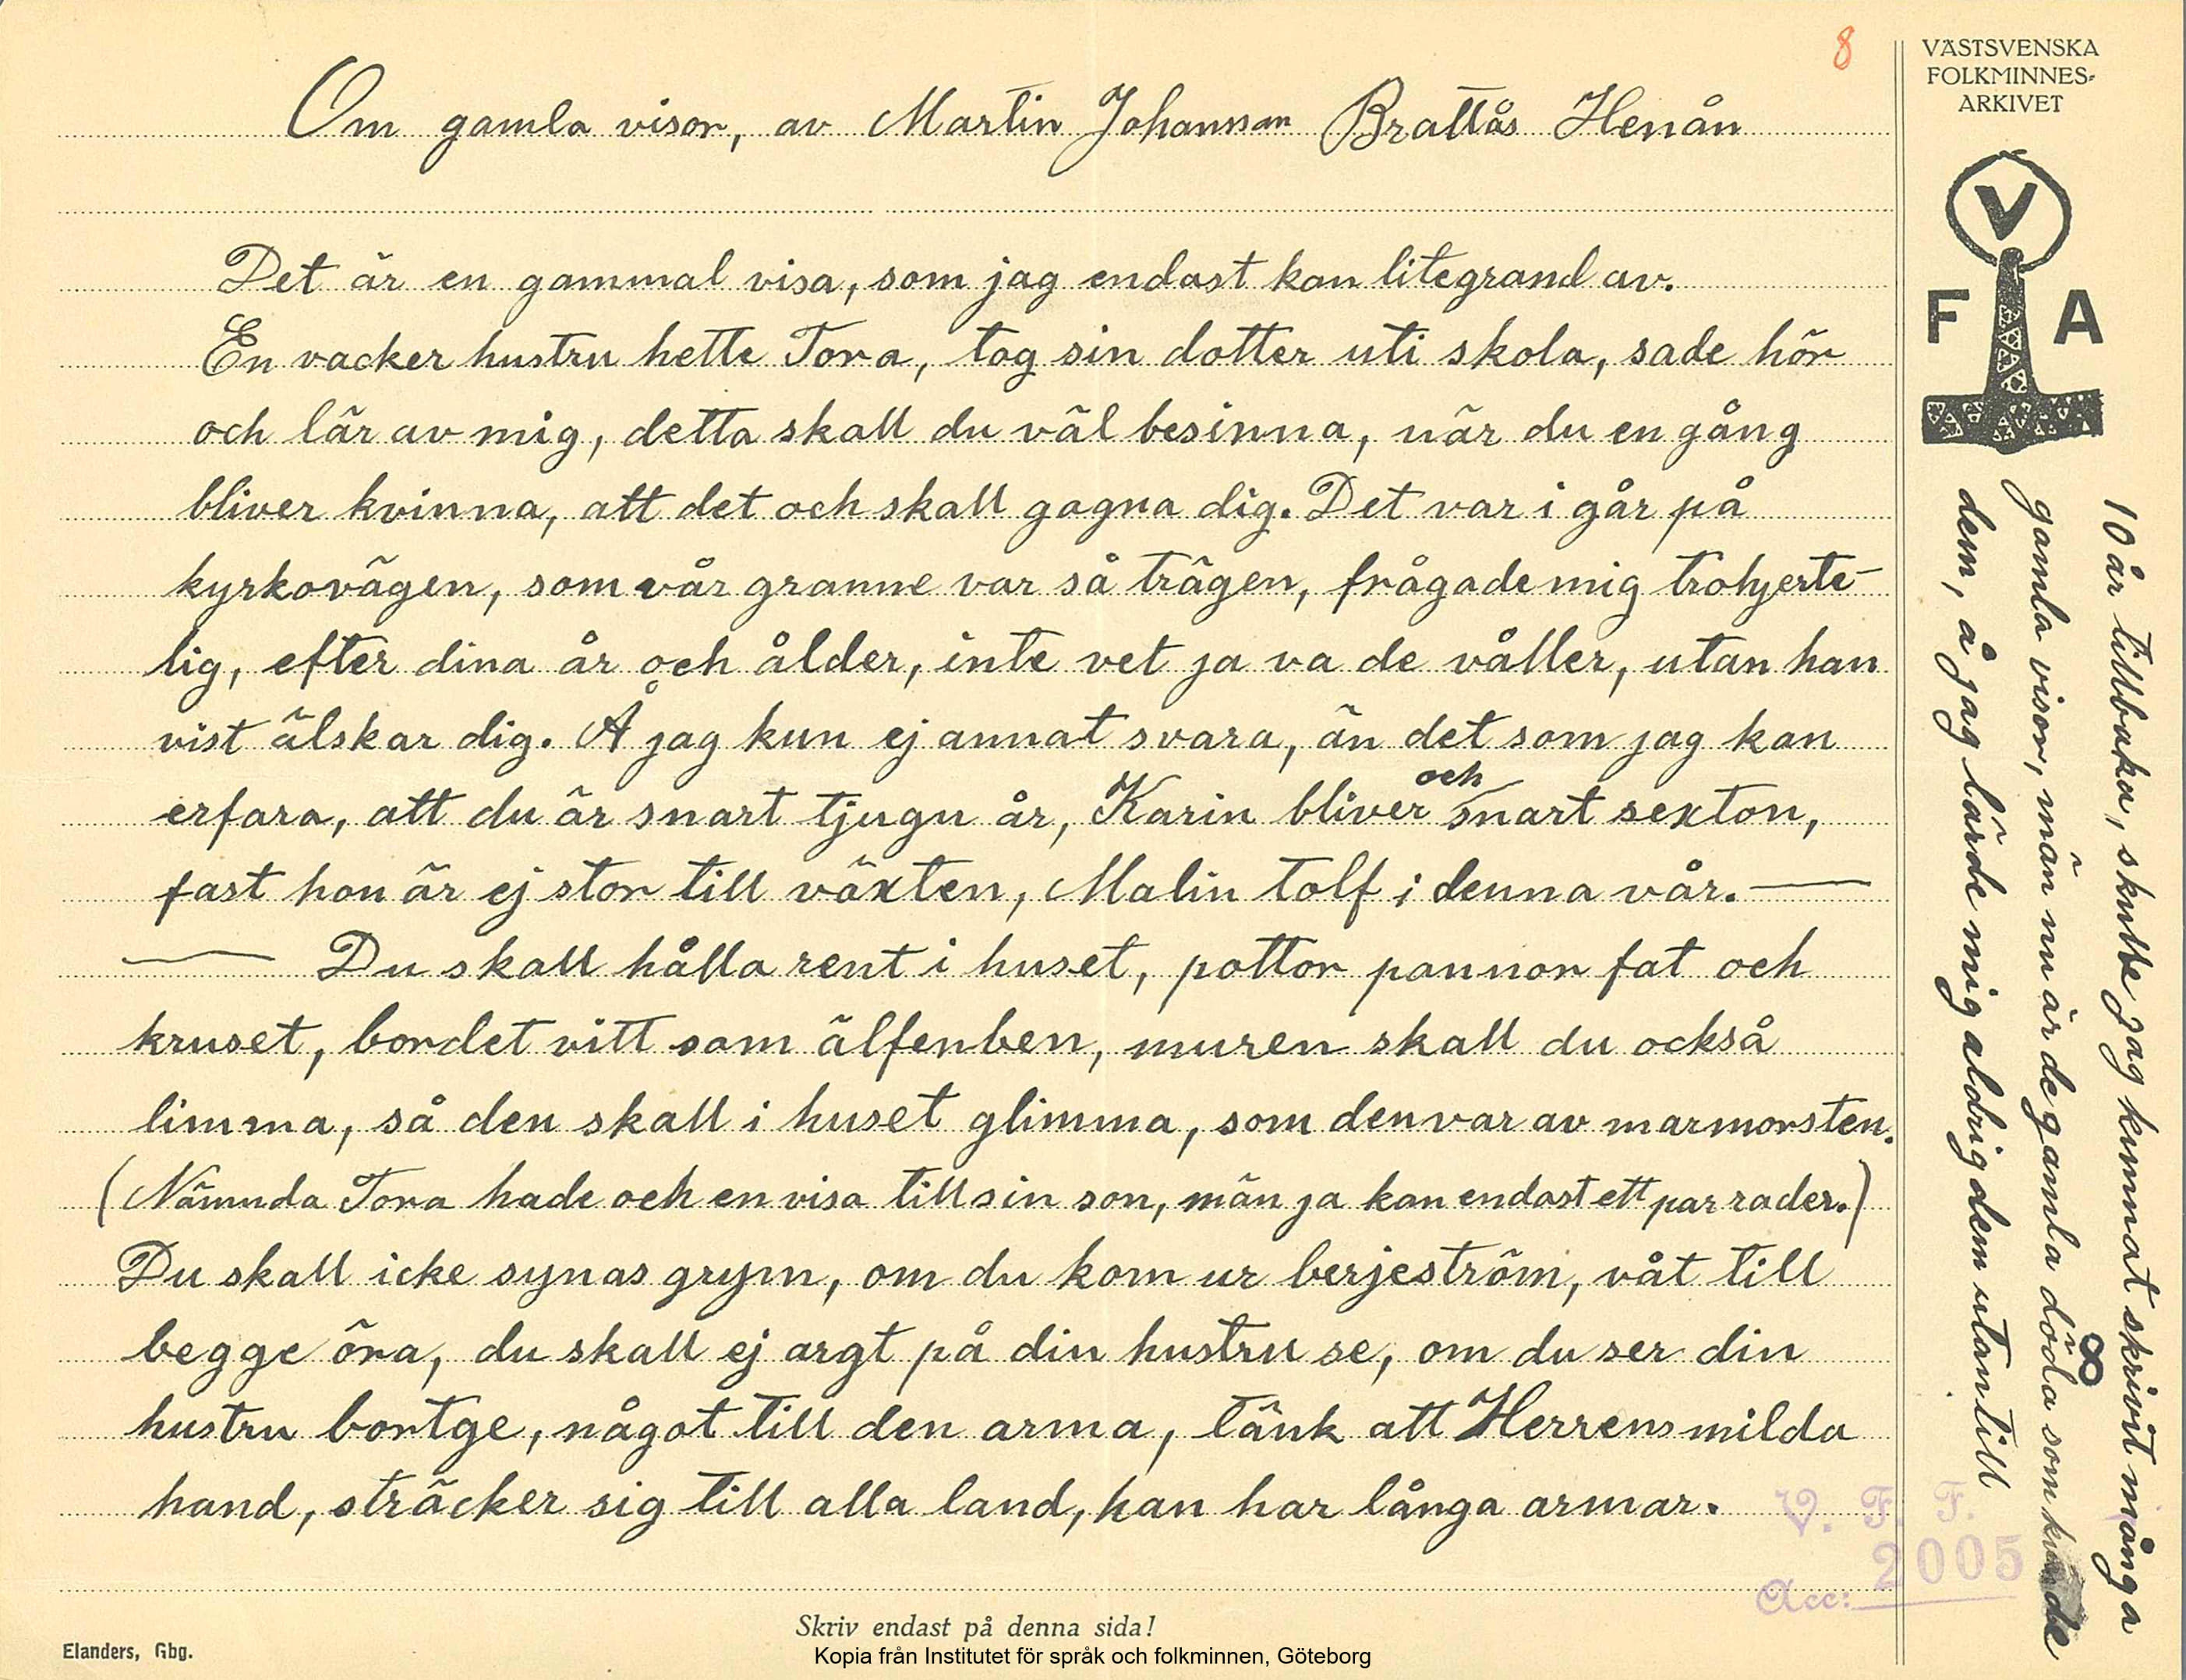 8
VÄSTSVENSKA
FOLKMINNES-
ARKIVET
V
F A
Om gamla visor, av Martin Johansson Brattås Henån
Det är en gammal visa, som jag endast kan litegrand av.
En vacker hustru hette Tora, tog sin dotter uti skola, sade hör
och lär av mig, detta skall du väl besinna, när du en gång
bliver kvinna, att det och skall gagna dig. Det var i går på
kyrkovägen, som vår granne var så trägen, frågade mig trohjerte-
lig, efter dina år och ålder, inte vet ja va de våller, utan han
vist älskar dig. Å jag kun ej annat svara, än det som jag kan
erfara, att du är snart tjugu år, Karin bliver och snart sexton,
fast hon är ej stor till växten, Malin tolf i denna vår. —
— Du skall hålla rent i huset, pottor pannor fat och
kruset, bordet vitt som älfenben, muren skall du också
limma, så den skall i huset glimma, som den var av marmorsten.
(Nämnda Tora hade och en visa till sin son, män ja kan endast ett par rader.)
Du skall icke synas grym, om du kom ur berjeström, våt till
begge öra, du skall ej argt på din hustru se, om du ser din
hustru bortge, något till den arma, tänk att Herrens milda
hand, sträcker sig till alla land, han har långa armar.
10 år tillbaka, skulle jag kunnat skrivit många
gamla visor, män nu är de gamla döda som kunde
dem, å jag lärde mig aldrig dem utantill
8
V. F. F.
Acc: 2005
Skriv endast på denna sida!
Elanders, Gbg.
Kopia från Institutet för språk och folkminnen, Göteborg